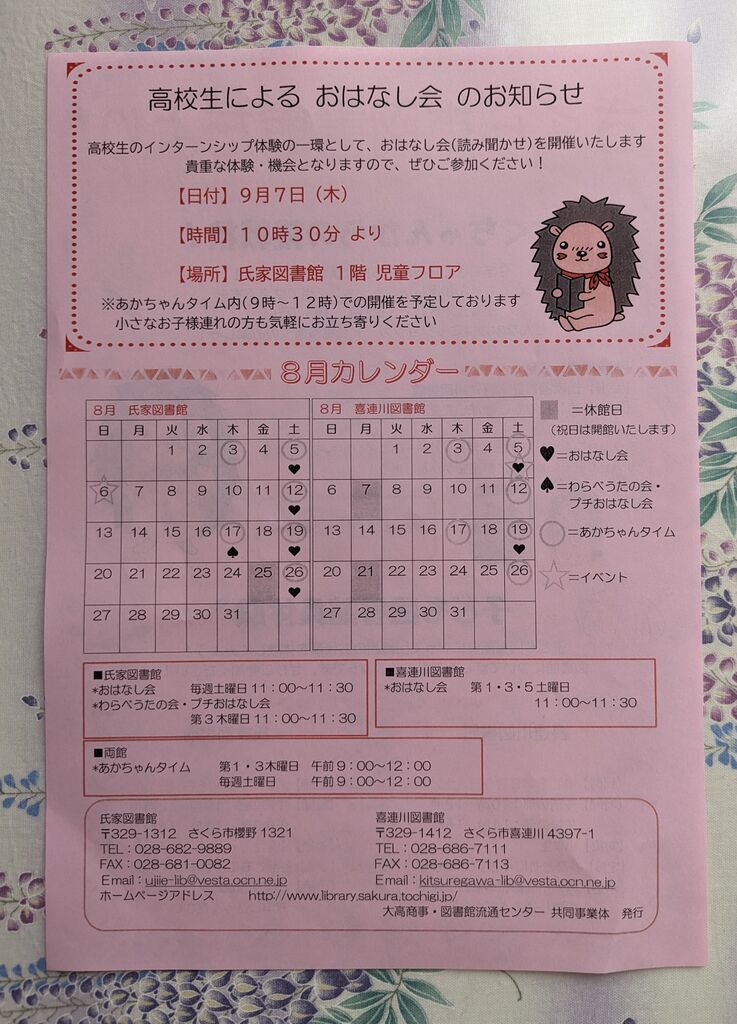 高校生による おはなし会 のお知らせ
高校生のインターンシップ体験の一環として、おはなし会(読み聞かせ)を開催いたします
貴重な体験・機会となりますので、ぜひご参加ください！
【日付】９月７日（木）
【時間】１０時３０分 より
【場所】氏家図書館 １階 児童フロア
※あかちゃんタイム内(９時～１２時)での開催を予定しております
小さなお子様連れの方も気軽にお立ち寄りください
８月カレンダー
８月 氏家図書館
日 月 火 水 木 金 土
1 2 3 4 5
♥
6 7 8 9 10 11 12
♥
13 14 15 16 17 18 19
♠ ♥
20 21 22 23 24 25 26
♥
27 28 29 30 31
８月 喜連川図書館
日 月 火 水 木 金 土
1 2 3 4 5
♥
6 7 8 9 10 11 12
13 14 15 16 17 18 19
♥
20 21 22 23 24 25 26
27 28 29 30 31
＝休館日
（祝日は開館いたします）
♥＝おはなし会
♠＝わらべうたの会・
プチおはなし会
○＝あかちゃんタイム
☆＝イベント
■氏家図書館
*おはなし会 毎週土曜日 11：00～11：30
*わらべうたの会・プチおはなし会
第３木曜日 11：00～11：30
■喜連川図書館
*おはなし会 第１・３・５土曜日
11：00～11：30
■両館
*あかちゃんタイム 第１・３木曜日 午前９：00～12：00
毎週土曜日 午前９：00～12：00
氏家図書館
〒329-1312 さくら市櫻野 1321
TEL：028-682-9889
FAX：028-681-0082
Email：ujiie-lib@vesta.ocn.ne.jp
喜連川図書館
〒329-1412 さくら市喜連川 4397-1
TEL：028-686-7111
FAX：028-686-7113
Email：kitsuregawa-lib@vesta.ocn.ne.jp
ホームページアドレス http://www.library.sakura.tochigi.jp/
大高商事・図書館流通センター 共同事業体 発行